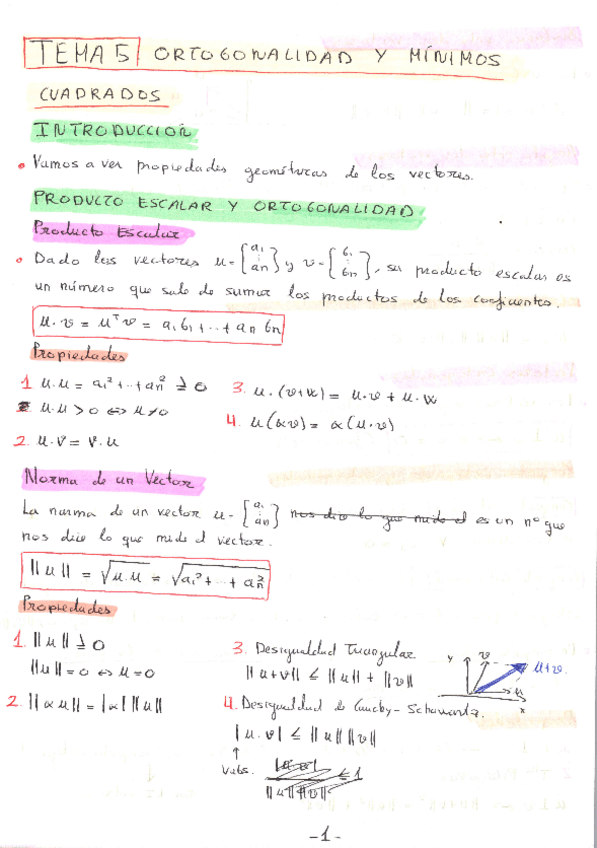 TEMA 5 ORTOGONALIDAD Y MÍNIMOS
CUADRADOS
INTRODUCCIÓN
• Vamos a ver propiedades geométricas de los vectores.
PRODUCTO ESCALAR Y ORTOGONALIDAD
Producto Escalar
• Dado los vectores u = [a₁ ⋮ an] y v = [b₁ ⋮ bn], su producto escalar es
un número que sale de sumar los productos de los coeficientes.
u·v = uᵀv = a₁b₁ + ··· + an bn
Propiedades
1 u·u = a₁² + ··· + an² ≥ 0
u·u > 0 ⇔ u ≠ 0
2. u·v = v·u
3. u·(v+w) = u·v + u·w
4. u(αv) = α(u·v)
Norma de un Vector
La norma de un vector u = [a₁ ⋮ an] nos dice lo que mide el es un nº que
nos dice lo que mide el vector.
||u|| = √u·u = √a₁² + ··· + an²
Propiedades
1. ||u|| ≥ 0
||u|| = 0 ⇔ u = 0
2. ||αu|| = |α| ||u||
3. Desigualdad Triangular
||u+v|| ≤ ||u|| + ||v||
y v u+v u x
4. Desigualdad de Cauchy-Schawartz.
|u·v| ≤ ||u|| ||v||
↑
Vabs.
≤ 1
||u|| ||v||
-1-